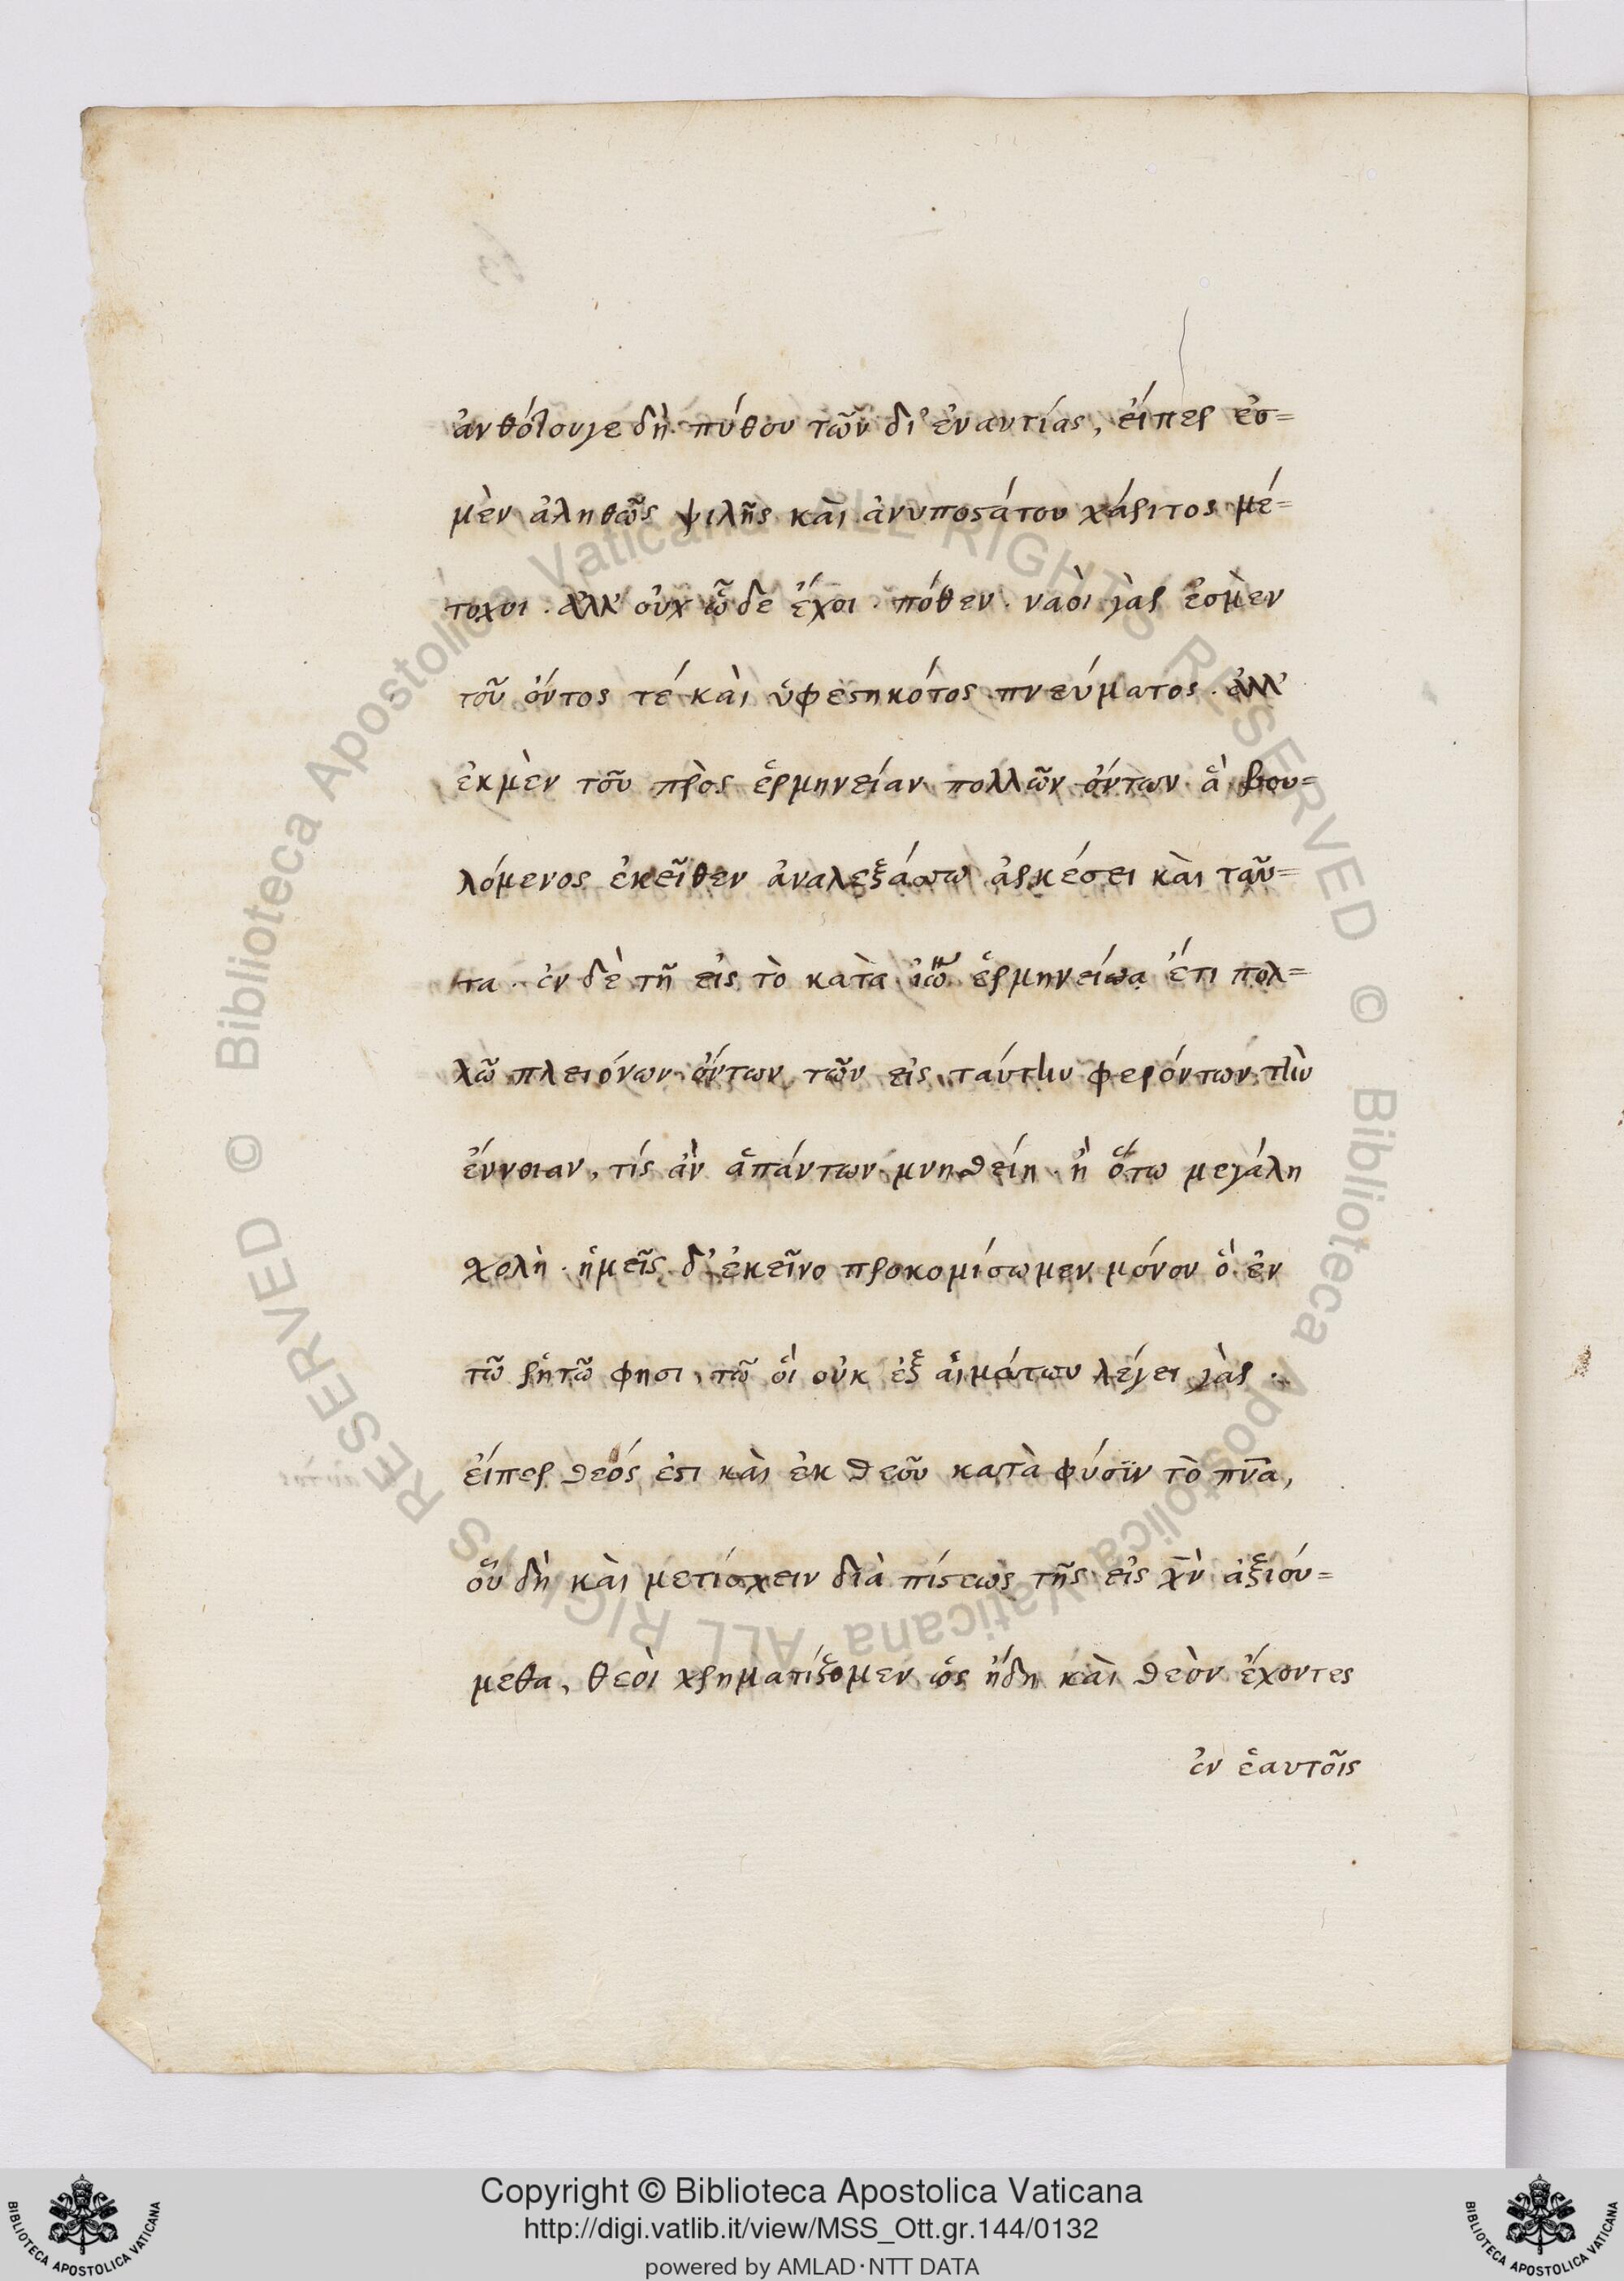 ἀνθότουγε δὴ πύθου τῶν δι' ἐναντίας, εἴπερ ἐσ=
μὲν ἀληθῶς ψιλῆς καὶ ἀνυποστάτου χάριτος μέ=
τοχοι · ἀλλ' οὐχ ὧδε ἔχοι · πόθεν · ναοὶ γὰρ ἐσμὲν
τοῦ ὄντος τέ καὶ ὑφεστηκότος πνεύματος · ἀλλ'
ἐκμὲν τοῦ πρὸς ἑρμηνείαν πολλῶν ὄντων ἃ βου=
λόμενος ἐκεῖθεν ἀναλεξάσθω ἀρκέσει καὶ ταῦ=
τα · ἐν δὲ τῇ εἰς τὸ κατὰ ἰω ἑρμηνεία ἔτι πολ=
λῶ πλειόνων ὄντων τῶν εἰς ταύτην φερόντων τὴν
ἔννοιαν, τίς ἂν ἁπάντων μνηθείη · ἢ ὅτω μεγάλη
σχολὴ · ἡμεῖς δ' ἐκεῖνο προκομίσωμεν μόνον ὃ ἐν
τῶ ῥητῶ φησι, τῶ οἳ οὐκ ἐξ αἱμάτων λέγει γὰρ ·
εἴπερ θεός ἐστι καὶ ἐκ θεοῦ κατὰ φύσϊν τὸ πνα,
οὗ δὴ καὶ μετίσχειν διὰ πίστεως τῆς εἰς χν ἀξιού=
μεθα, θεοὶ χρηματίζομεν ὡς ἤδη καὶ θεὸν ἔχοντες
ἐν ἑαυτοῖς
Copyright © Biblioteca Apostolica Vaticana
http://digi.vatlib.it/view/MSS_Ott.gr.144/0132
powered by AMLAD·NTT DATA
BIBLIOTECA APOSTOLICA VATICANA
BIBLIOTECA APOSTOLICA VATICANA
© Biblioteca Apostolica Vaticana ALL RIGHTS RESERVED
© Biblioteca Apostolica Vaticana ALL RIGHTS RESERVED